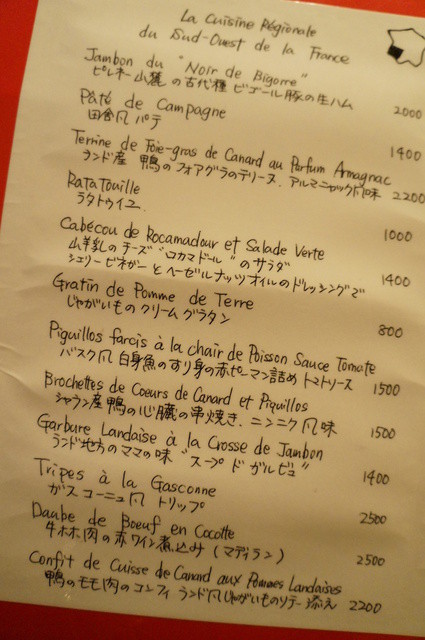 La Cuisine Régionale
du Sud-Ouest de la France
Jambon du "Noir de Bigorre"
ピレネー山麓の古代種 ビゴール豚の生ハム 2000
Pâté de Campagne
田舎風パテ 1400
Terrine de Foie-gras de Canard au Parfum Armagnac
ランド産 鴨のフォアグラのテリーヌ、アルマニャック風味 2200
RaTaTouille
ラタトゥイユ 1000
Cabécou de Rocamadour et Salade Verte
山羊乳のチーズ"ロカマドール"のサラダ
シェリービネガーとヘーゼルナッツオイルのドレッシングで 1400
Gratin de Pomme de Terre
じゃがいものクリームグラタン 800
Piquillos farcis à la chair de Poisson Sauce Tomate
バスク風 白身魚のすり身の赤ピーマン詰め トマトソース 1500
Brochettes de Coeurs de Canard et Piquillos
シャラン産鴨の心臓の串焼き、ニンニク風味 1500
Garbure Landaise à la Crosse de Jambon
ランド地方のママの味 "スープ ド ガルビュ" 1400
Tripes à la Gasconne
ガスコーニュ風 トリップ 2500
Daube de Boeuf en Cocotte
牛ホホ肉の赤ワイン煮込み(マディラン) 2500
Confit de Cuisse de Canard aux Pommes Landaises
鴨のモモ肉のコンフィ ランド風じゃがいものソテー添え 2200